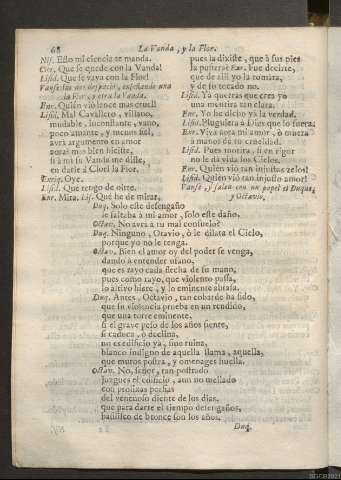 68 La Vanda, y la Flor.
Nis. Esto mi ciencia te manda.
Clor. Que se quede con la Vanda!
Lisid. Que se vaya con la Flor!
Vanse las dos despacio, enseñando una
la Flor, y otra la Vanda.
Enr. Quién vió lance mas cruel!
Lisid. Mal Cavallero, villano,
mudable, inconstante, vano,
poco amante, y menos fiel,
avrá argumento en amor
aora? mas bien hiciste,
si à mi su Vanda me diste,
en darle à Clori la Flor.
Enriq. Oye.
Lisid. Què tengo de oirte.
Enr. Mira. Lis. Què he de mirar,
pues la dixiste, que à sus pies
la pusiera? Enr. Fue decirte,
que de alli yo la tomàra,
y de lo tocado no.
Lisid. Ya querràs que crea yo
una mentira tan clara.
Enr. Yo he dicho yà la verdad.
Lisid. Pluguiera à Dios que lo fuera.
Enr. Viva aora mi amor, ò muera
à manos de tu crueldad.
Lisid. Pues morirà, si en rigor
no le dà vida los Cielos.
Enr. Quién vió tan injustos zelos!
Lisid. Quién vió tan injusto amor!
Vanse, y salen con un papel el Duque,
y Octavio.
Duq. Solo este desengaño
le faltaba à mi amor, solo este daño.
Octav. No avrà à tu mal consuelo?
Duq. Ninguno, Otavio, ò le dilata el Cielo,
porque yo no le tenga.
Octav. Bien el amor oy del poder se venga,
dando à entender ufano,
que es rayo cada flecha de su mano,
pues como rayo, que violento passa,
lo altivo hiere, y lo eminente abrasa.
Duq. Antes, Octavio, tan cobarde ha sido,
que su violencia prueba en un rendido,
que una torre eminente,
si el grave peso de los años siente,
si caduca, ò declina,
no es edificio ya, sino ruina,
blanco indigno de aquella llama, aquella,
que muros postra, y omenages huella.
Octav. No, señor, tan postrado
juzgues el edificio, aun no mellado
con prolixas
del venenoso diente de los dias,
que para darte el tiempo desengaños,
basilisco de bronce son los años.
Duq.